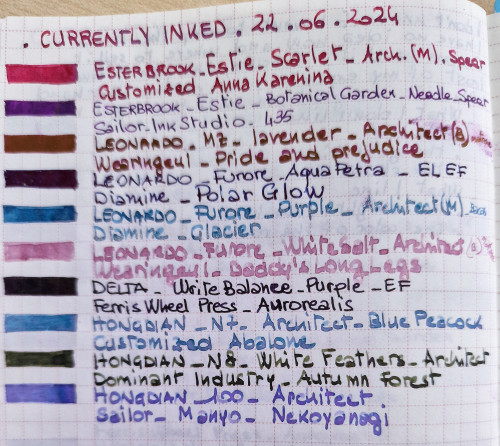 . CURRENTLY INKED . 22 . 06 . 2024
ESTERBROOK _ Estie _ Scarlet _ Arch. (M). Spear
Customized Anna Karenina
ESTERBROOK _ Estie _ Botanical Garden _ Needle _ Spear
Sailor _ Ink Studio _ 435
LEONARDO _ MZ _ lavender _ Architect (B)
Wearingeul _ Pride and prejudice
LEONARDO _ Furore _ Aqua Petra _ EL EF
Diamine _ Polar Glow
LEONARDO _ Furore _ Purple _ Architect (M)
Diamine _ Glacier
LEONARDO _ Furore _ White balt _ Architect
Wearingeul _ Daddy's Long Legs
DELTA _ Write Balance _ Purple _ EF
Ferris Wheel Press _ Aurorealis
HONGDIAN _ N7 _ Architect _ Blue Peacock
Customized Abalone
HONGDIAN _ N8 _ White Feathers _ Architect
Dominant Industry _ Autumn Forest
HONGDIAN _ 100 _ Architect
Sailor _ Manyo _ Nekoyanagi